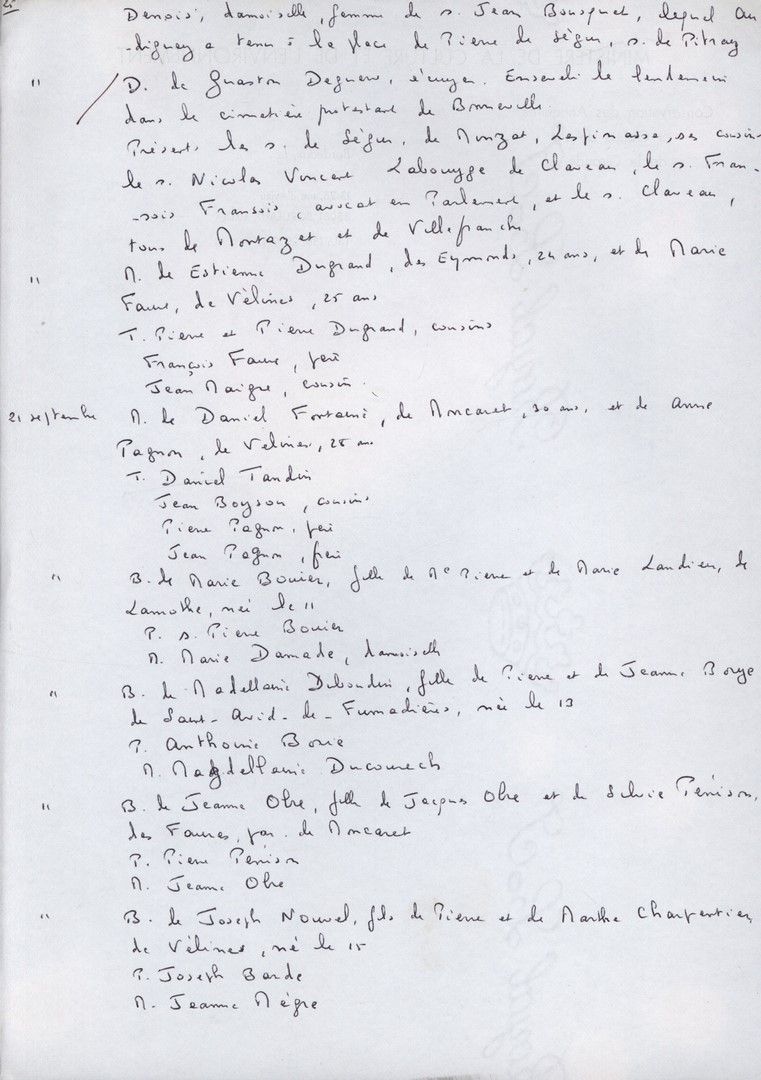 Denois, damoiselle, femme de s. Jean Bousquet, lequel Au
-diguey a tenu à la place de Pierre de Ségur, s. de Pitray
" D. de Guaston Deguerre, écuyer. Enseveli le lendemain
dans le cimetière protestant de Bonneville.
Présents les s. de Ségur, de Monzat, Lespinasse, ses cousins
le s. Nicolas Vincent Labouyge de Claveau, le s. Fran-
-sois Fransois, avocat en Parlement, et le s. Claveau,
tous de Montazet et de Villefranche
" M. de Estienne Dugrand, des Eymonds, 24 ans, et de Marie
Faure, de Vélines, 25 ans
T. Pierre et Pierre Dugrand, cousins
François Faure, père
Jean Maigre, cousin.
21 septembre M. de Daniel Fontaine, de Moncaret, 30 ans, et de Anne
Pagnon, de Vélines, 28 ans
T. Daniel Tandin
Jean Boyson, cousins
Pierre Pagnon, père
Jean Pagnon, frère
" B. de Marie Bouier, fille de Me Pierre et de Marie Landieu, de
Lamothe, née le 11
P. s. Pierre Bouier
M. Marie Damade, damoiselle
" B. de Madellaine Deboudin, fille de Pierre et de Jeanne Borye
de Saint-Avid-de-Fumadières, née le 13
P. Anthonie Borie
M. Magdellaine Ducourech
" B. de Jeanne Obre, fille de Jacques Obre et de Silvie Périson,
des Faures, par. de Moncaret
P. Pierre Périson
M. Jeanne Obre
" B. de Joseph Nouvel, fils de Pierre et de Marthe Charpentier,
de Vélines, né le 15
P. Joseph Barde
M. Jeanne Mègre